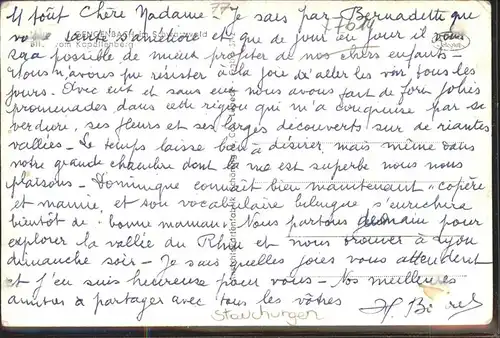 11 Août Chère Madame - Je sais par Bernadette que
votre santé s'améliore et que de jour en jour il vous
sera possible de mieux profiter de nos chers enfants -
Nous n'avons pu résister à la joie d'aller les voir tous les
jours. Avec eux et sans eux nous avons fait de fort jolies
promenades dans cette région qui m'a conquise par sa
verdure, ses fleurs et ses larges découverts sur de riantes
vallées - Le temps laisse bien à désirer mais même dans
notre grande chambre dont la vue est superbe nous nous
plaisons - Dominique connaît bien maintenant "copère
et mamie, et son vocabulaire bilingue s'enrichira
bientôt de "bonne maman. Nous partons demain pour
explorer la vallée du Rhin et nous trouver à Lyon
dimanche soir - Je sais quelles joies vous attendent
et j'en suis heureuse pour vous - Nos meilleures
amitiés à partager avec tous les vôtres
Stauchungen
vom Kapellenberg